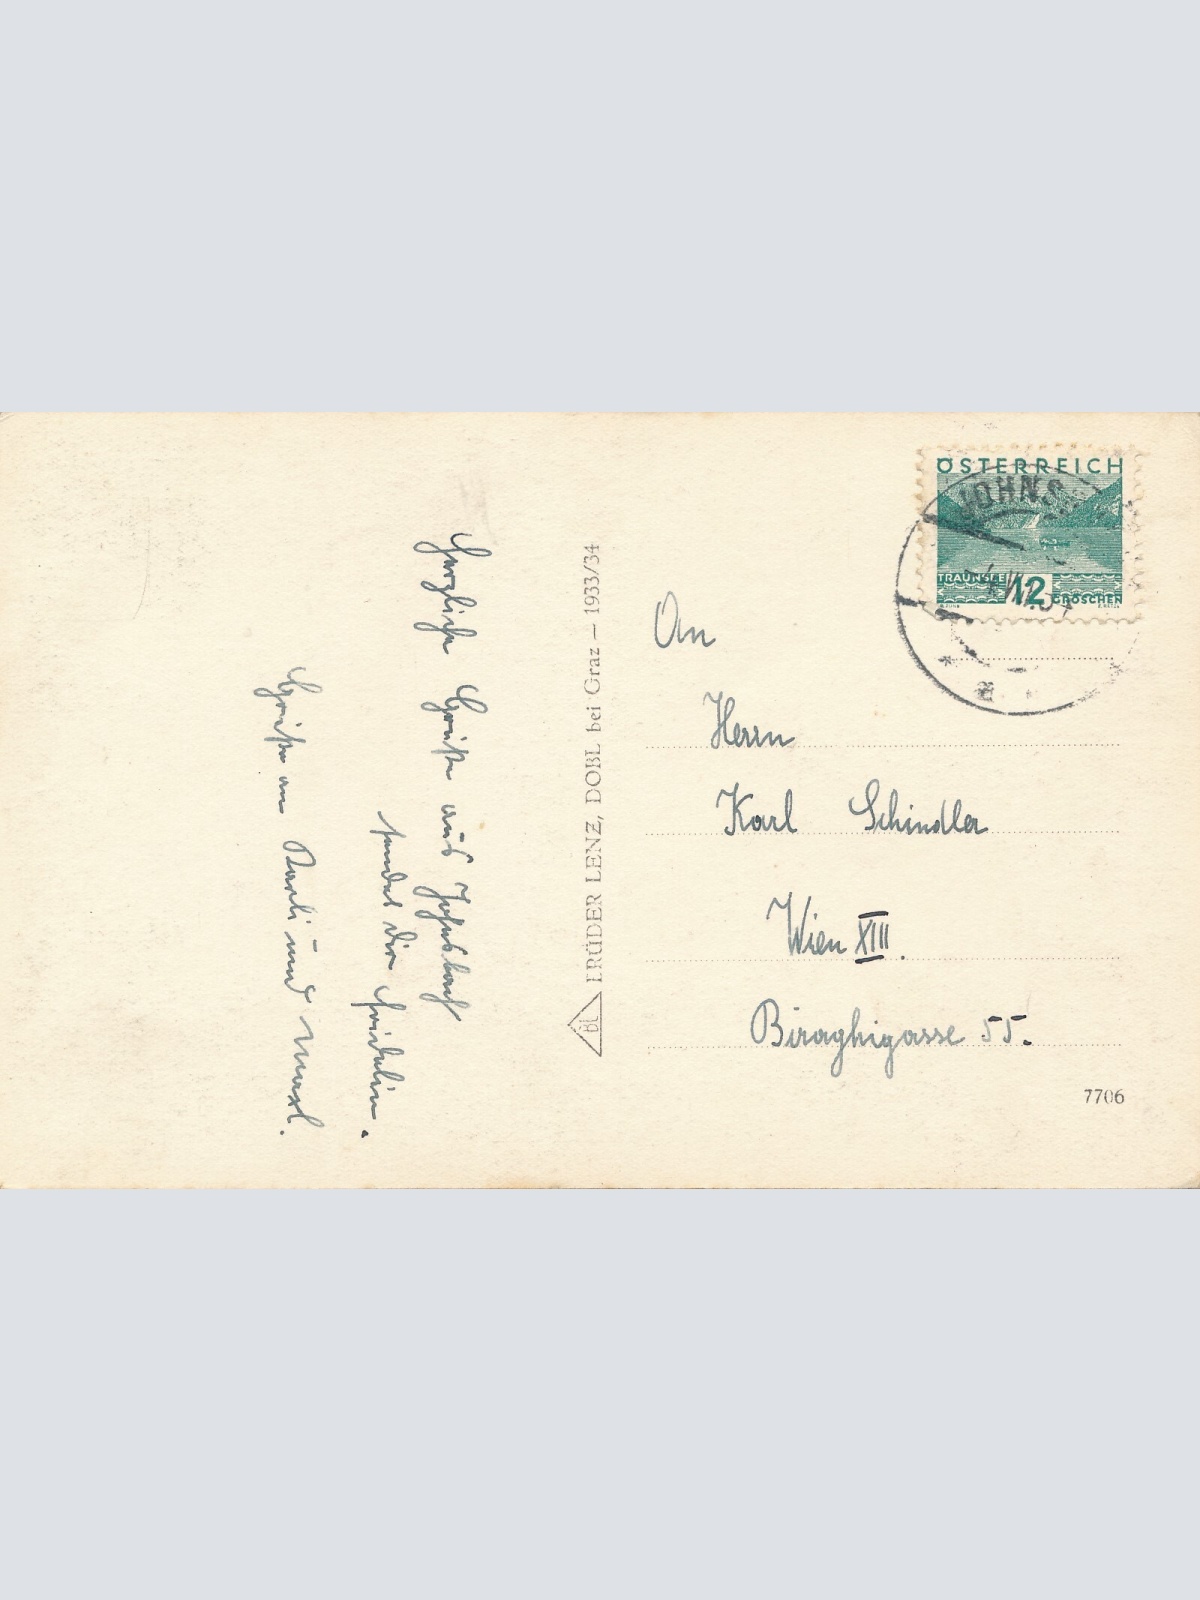 Herzliche Grüße aus Johnsbach
sendet dir
Grüße an und
BRÜDER LENZ, DOBL bei Graz – 1933/34
BL
ÖSTERREICH
TRAUNSEE 12 GROSCHEN
JOHNS
a
An
Herrn
Karl Schindler
Wien XIII.
Biraghigasse 55.
7706